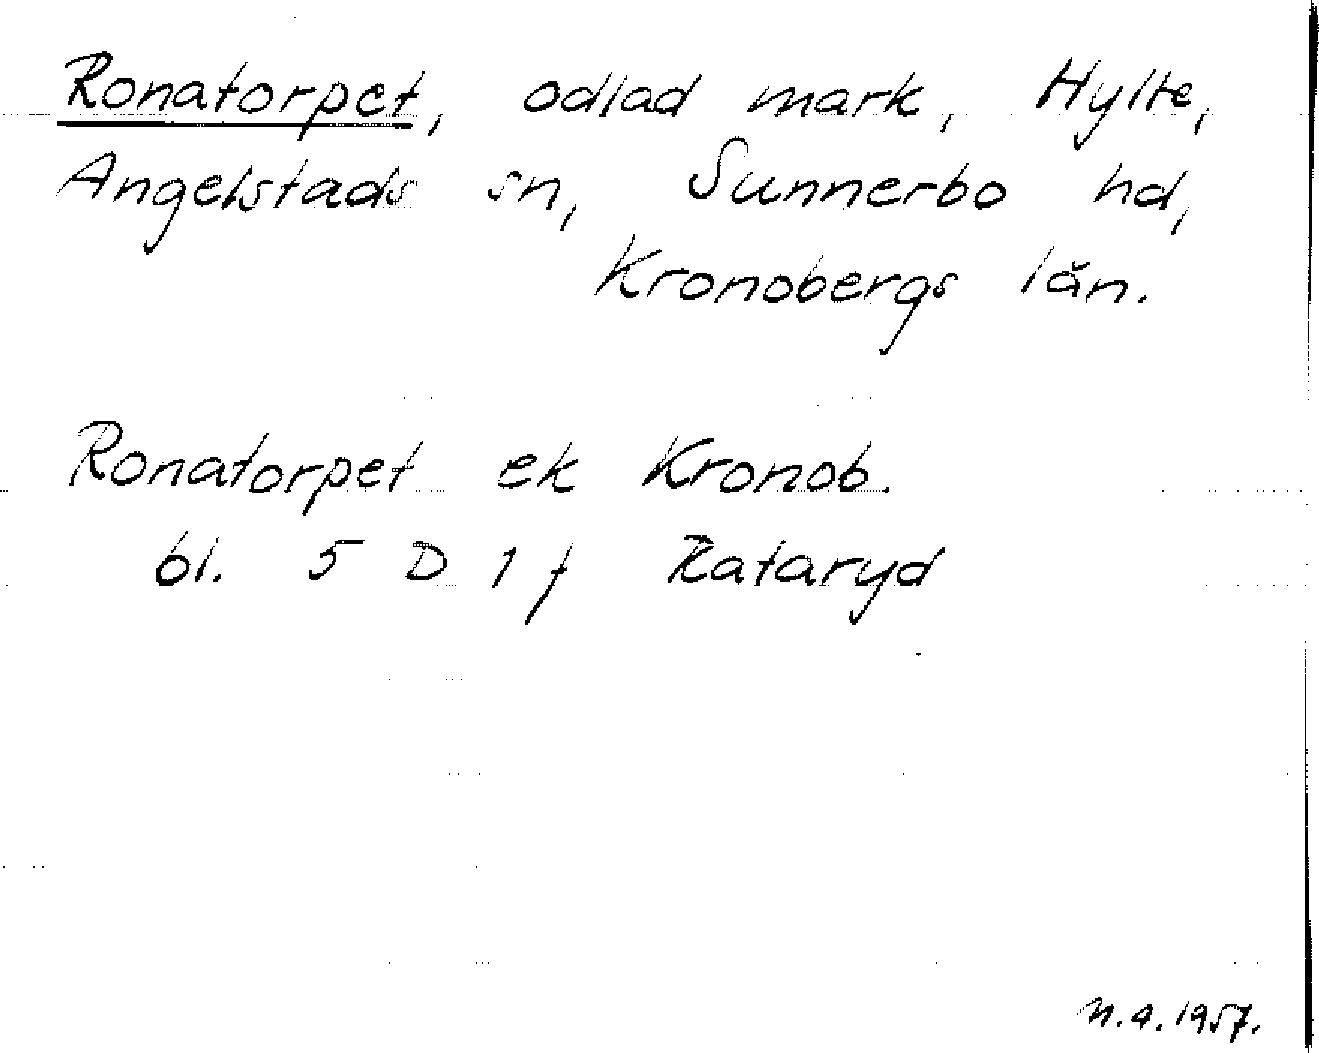 Ronatorpet, odlad mark, Hylte,
Angelstads sn, Sunnerbo hd,
Kronobergs län.
Ronatorpet ek Kronob.
bl. 5 D 1 f Rataryd
N.A. 1957.